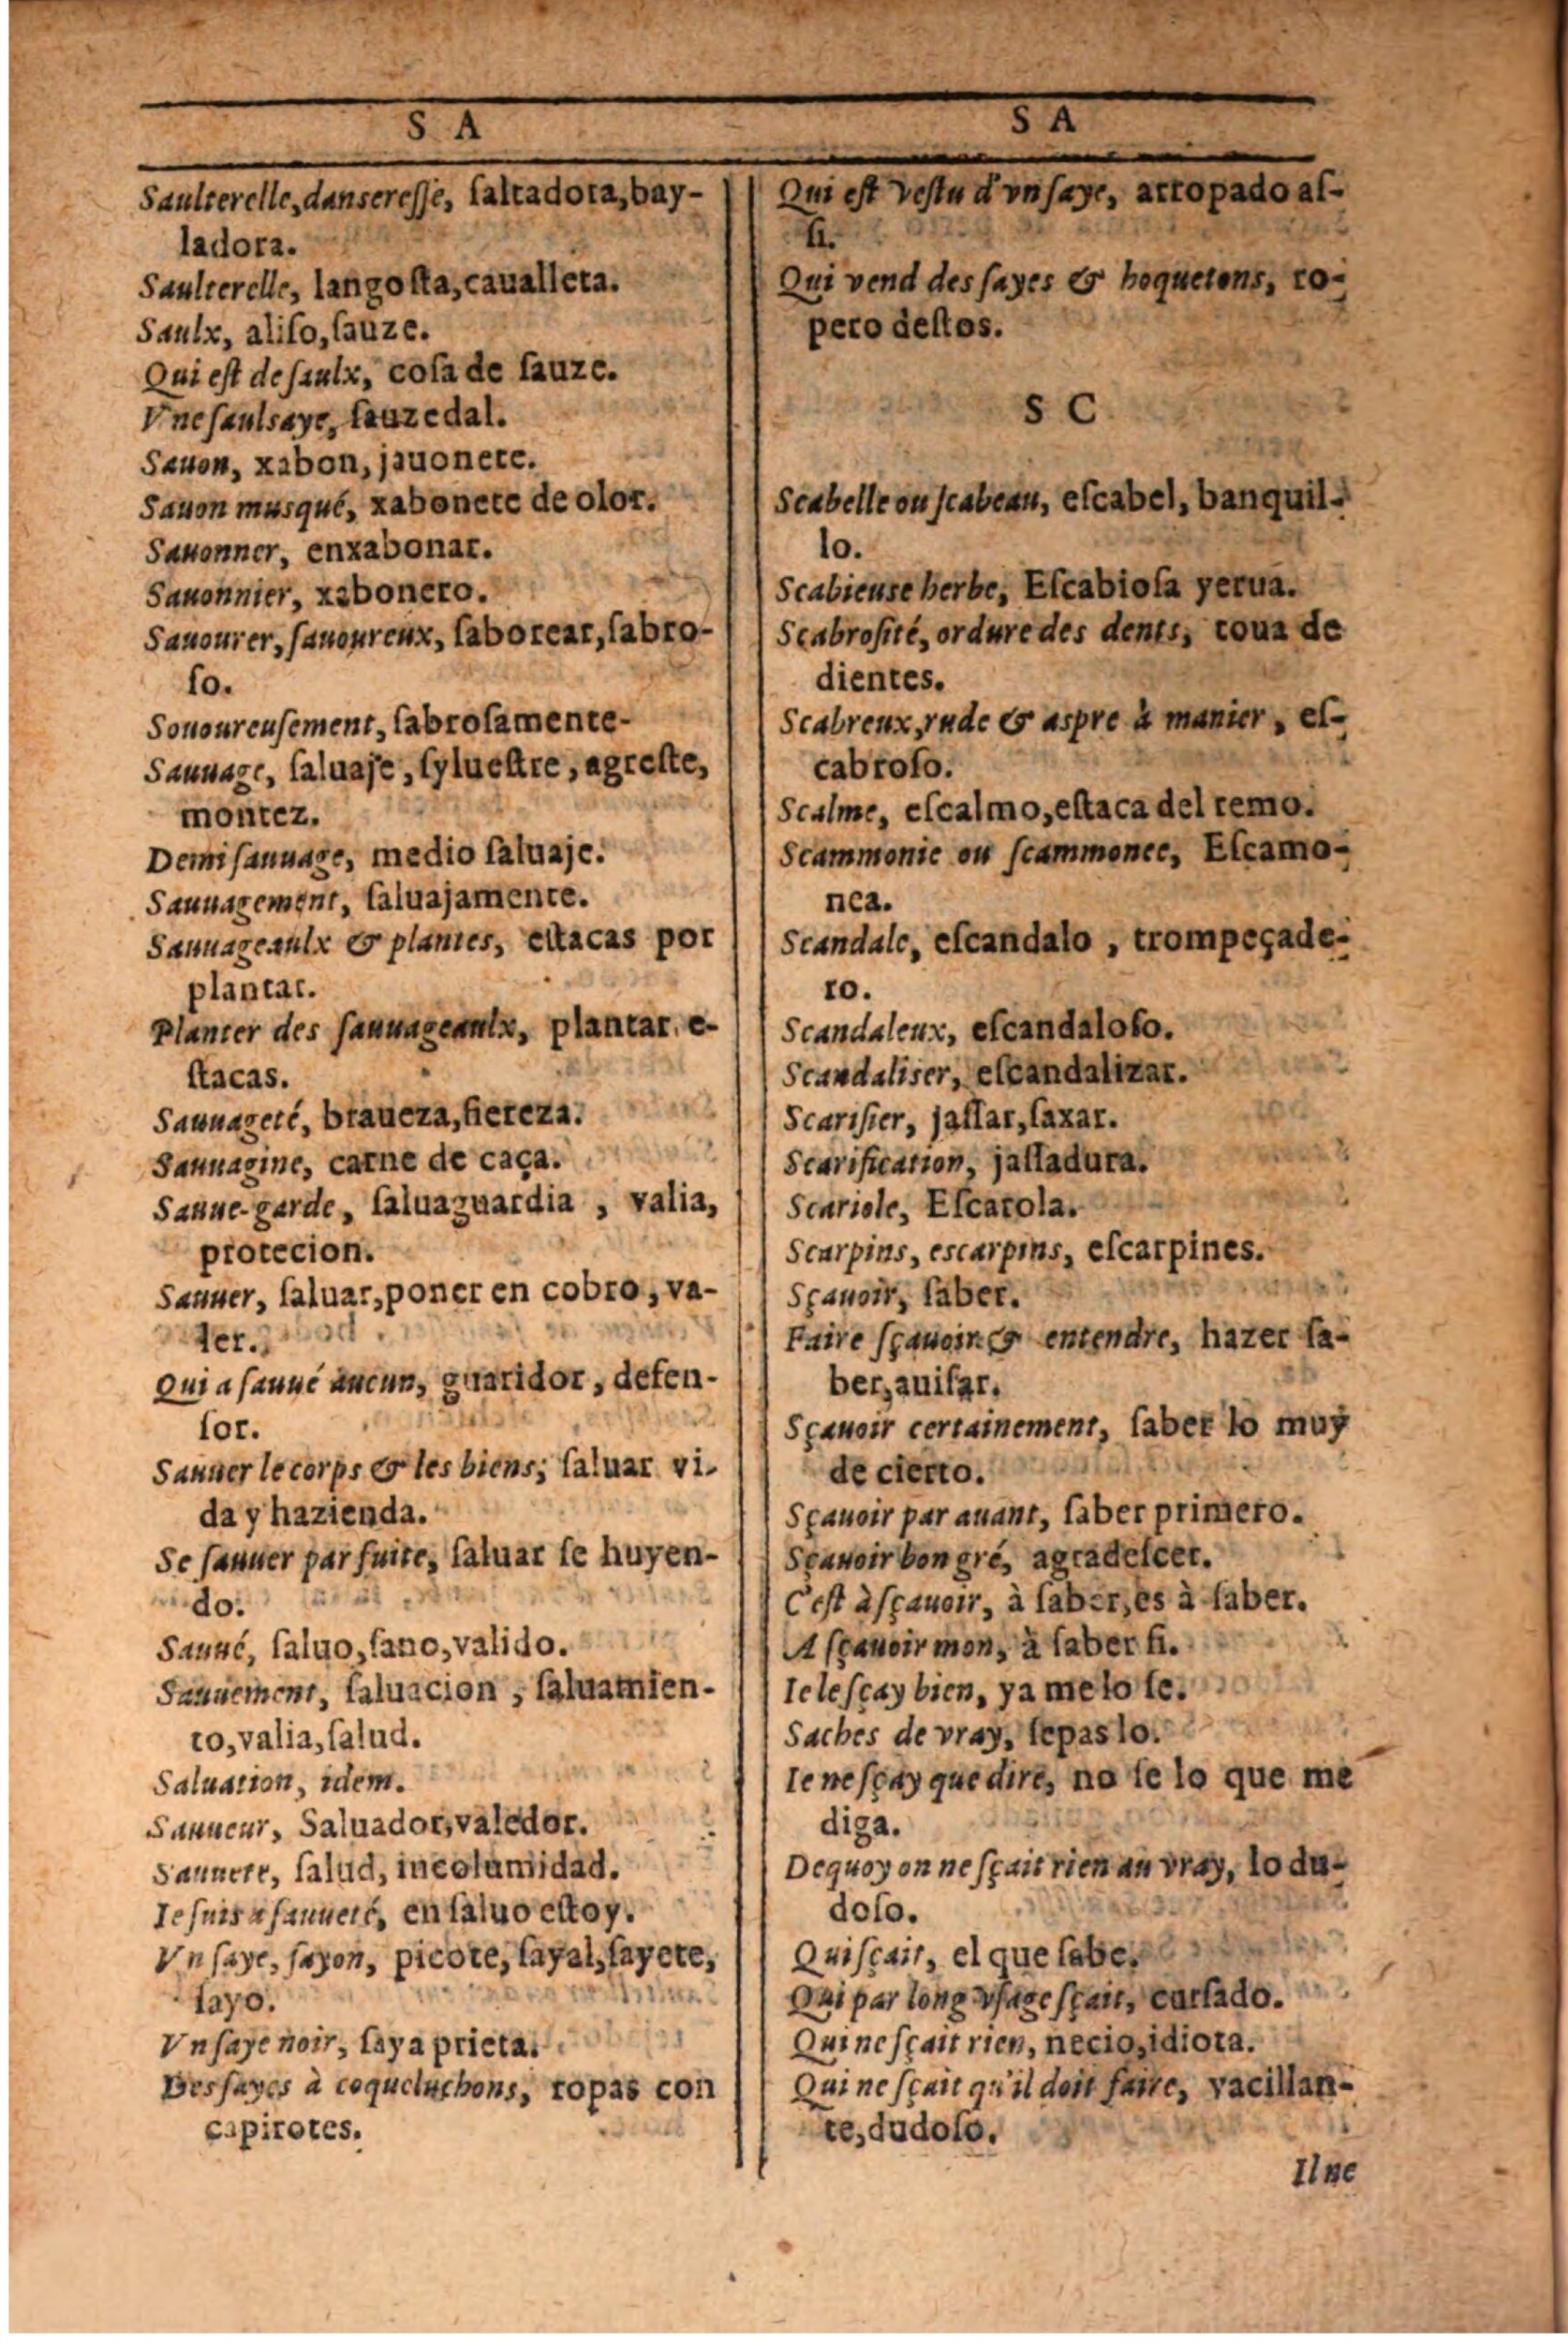 S A
Saulterelle, danseresse, ſaltadora, bay-
ladora.
Saulterelle, langoſta, caualleta.
Saulx, aliſo, ſauze.
Qui eſt de ſaulx, coſa de ſauze.
Vne ſaulsaye, ſauzedal.
Sauon, xabon, jauonete.
Sauon musqué, xabonete de olor.
Sauonner, enxabonar.
Sauonnier, xabonero.
Sauourer, ſauoureux, ſaborear, ſabro-
ſo.
Sououreuſement, ſabroſamente-
Sauuage, ſaluaje, ſylueſtre, agreſte,
montez.
Demi ſauuage, medio ſaluaje.
Sauuagement, ſaluajamente.
Sauuageaulx & plantes, eſtacas por
plantar.
Planter des ſauuageaulx, plantar e-
ſtacas.
Sauuageté, braueza, fiereza.
Sauuagine, carne de caça.
Sauue-garde, ſaluaguardia, valia,
protecion.
Sauuer, ſaluar, poner en cobro, va-
ler.
Qui a ſauué aucun, guaridor, defen-
ſor.
Sauuer le corps & les biens; ſaluar vi-
da y hazienda.
Se ſauuer par fuite, ſaluar ſe huyen-
do.
Sauué, ſaluo, ſano, valido.
Sauuement, ſaluacion, ſaluamien-
to, valia, ſalud.
Saluation, idem.
Sauueur, Saluador, valedor.
Sauuete, ſalud, incolumidad.
Ie ſuis a ſauueté, en ſaluo eſtoy.
Vn ſaye, ſayon, picote, ſayal, ſayete,
ſayo.
Vn ſaye noir, ſaya prieta.
Des ſayes à coqueluchons, ropas con
capirotes.
S A
Qui eſt veſtu d'vn ſaye, arropado aſ-
ſi.
Qui vend des ſayes & hoquetons, ro-
pero deſtos.
S C
Scabelle ou ſcabeau, eſcabel, banquil-
lo.
Scabieuse herbe, Eſcabioſa yerua.
Scabroſité, ordure des dents, toua de
dientes.
Scabreux, rude & aspre à manier, eſ-
cabroſo.
Scalme, eſcalmo, eſtaca del remo.
Scammonie ou ſcammonee, Eſcamo-
nea.
Scandale, eſcandalo, trompeçade-
ro.
Scandaleux, eſcandaloſo.
Scandaliser, eſcandalizar.
Scarifier, jaſſar, ſaxar.
Scarification, jaſſadura.
Scariole, Eſcarola.
Scarpins, escarpins, eſcarpines.
Sçauoir, ſaber.
Faire ſçauoir & entendre, hazer ſa-
ber, auiſar.
Sçauoir certainement, ſaber lo muy
de cierto.
Sçauoir par auant, ſaber primero.
Sçauoir bon gré, agradeſcer.
C'eſt à ſçauoir, à ſaber, es à ſaber.
A ſçauoir mon, à ſaber ſi.
Ie le ſçay bien, ya me lo ſe.
Saches de vray, ſepas lo.
Ie ne ſçay que dire, no ſe lo que me
diga.
Dequoy on ne ſçait rien au vray, lo du-
doſo.
Qui ſçait, el que ſabe.
Qui par long vſage ſçait, curſado.
Qui ne ſçait rien, necio, idiota.
Qui ne ſçait qu'il doit faire, vacillan-
te, dudoſo.
Il ne